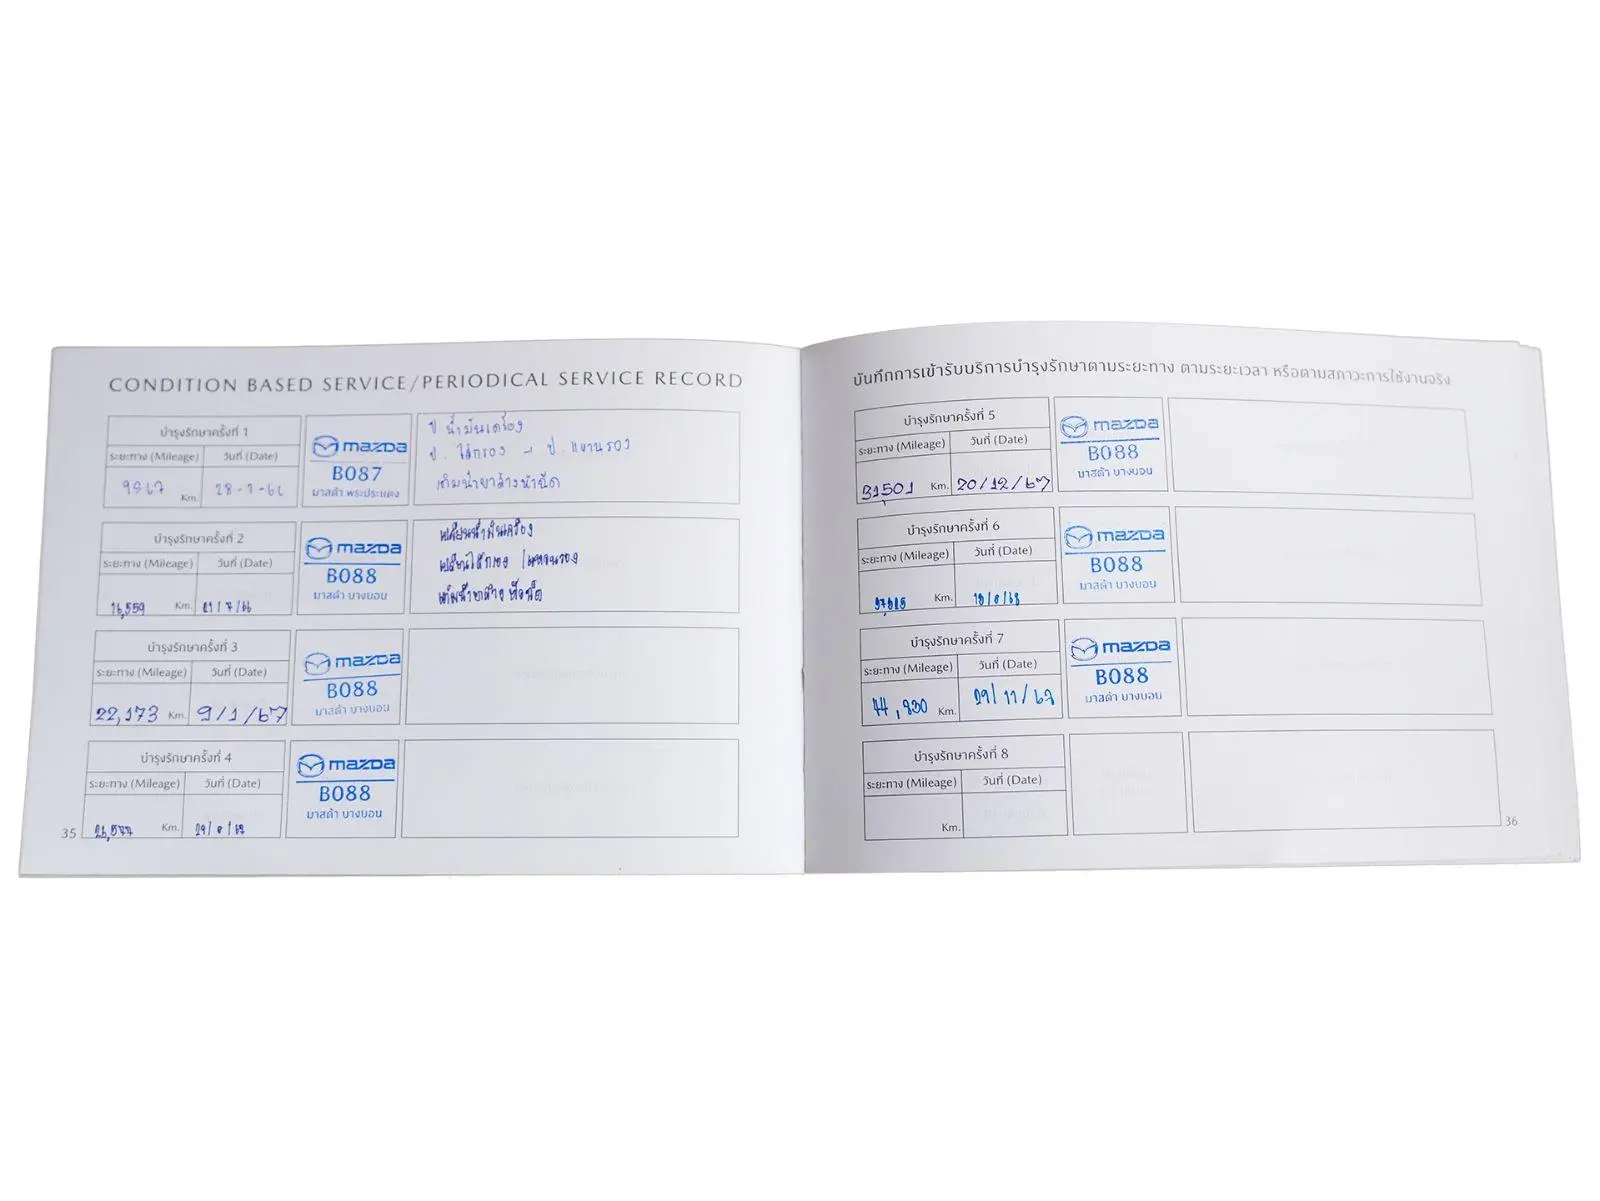 CONDITION BASED SERVICE/PERIODICAL SERVICE RECORD
บำรุงรักษาครั้งที่ 1
ระยะทาง (Mileage) วันที่ (Date)
Km.
mazda
B087
มาสด้า พระประแดง
ป น้ำมันเครื่อง
ป. ไส้กรอง - ป. แหวนรอง
เติมน้ำยาล้างหัวฉีด
บำรุงรักษาครั้งที่ 2
ระยะทาง (Mileage) วันที่ (Date)
16,559 Km. 21/7/66
mazda
B088
มาสด้า บางบอน
เปลี่ยนน้ำมันเครื่อง
เปลี่ยนไส้กรอง /แหวนรอง
เติมน้ำยาล้างหัวฉีด
บำรุงรักษาครั้งที่ 3
ระยะทาง (Mileage) วันที่ (Date)
22,173 Km. 9/1/67
mazda
B088
มาสด้า บางบอน
บำรุงรักษาครั้งที่ 4
ระยะทาง (Mileage) วันที่ (Date)
Km.
mazda
B088
มาสด้า บางบอน
35
บันทึกการเข้ารับบริการบำรุงรักษาตามระยะทาง ตามระยะเวลา หรือตามสภาวะการใช้งานจริง
บำรุงรักษาครั้งที่ 5
ระยะทาง (Mileage) วันที่ (Date)
31,501 Km. 20/12/67
mazda
B088
มาสด้า บางบอน
บำรุงรักษาครั้งที่ 6
ระยะทาง (Mileage) วันที่ (Date)
Km.
mazda
B088
มาสด้า บางบอน
บำรุงรักษาครั้งที่ 7
ระยะทาง (Mileage) วันที่ (Date)
Km.
mazda
B088
มาสด้า บางบอน
บำรุงรักษาครั้งที่ 8
ระยะทาง (Mileage) วันที่ (Date)
Km.
36